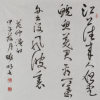 江上往来人但爱
鲈鱼美君看一叶舟
出没风波里
范仲淹